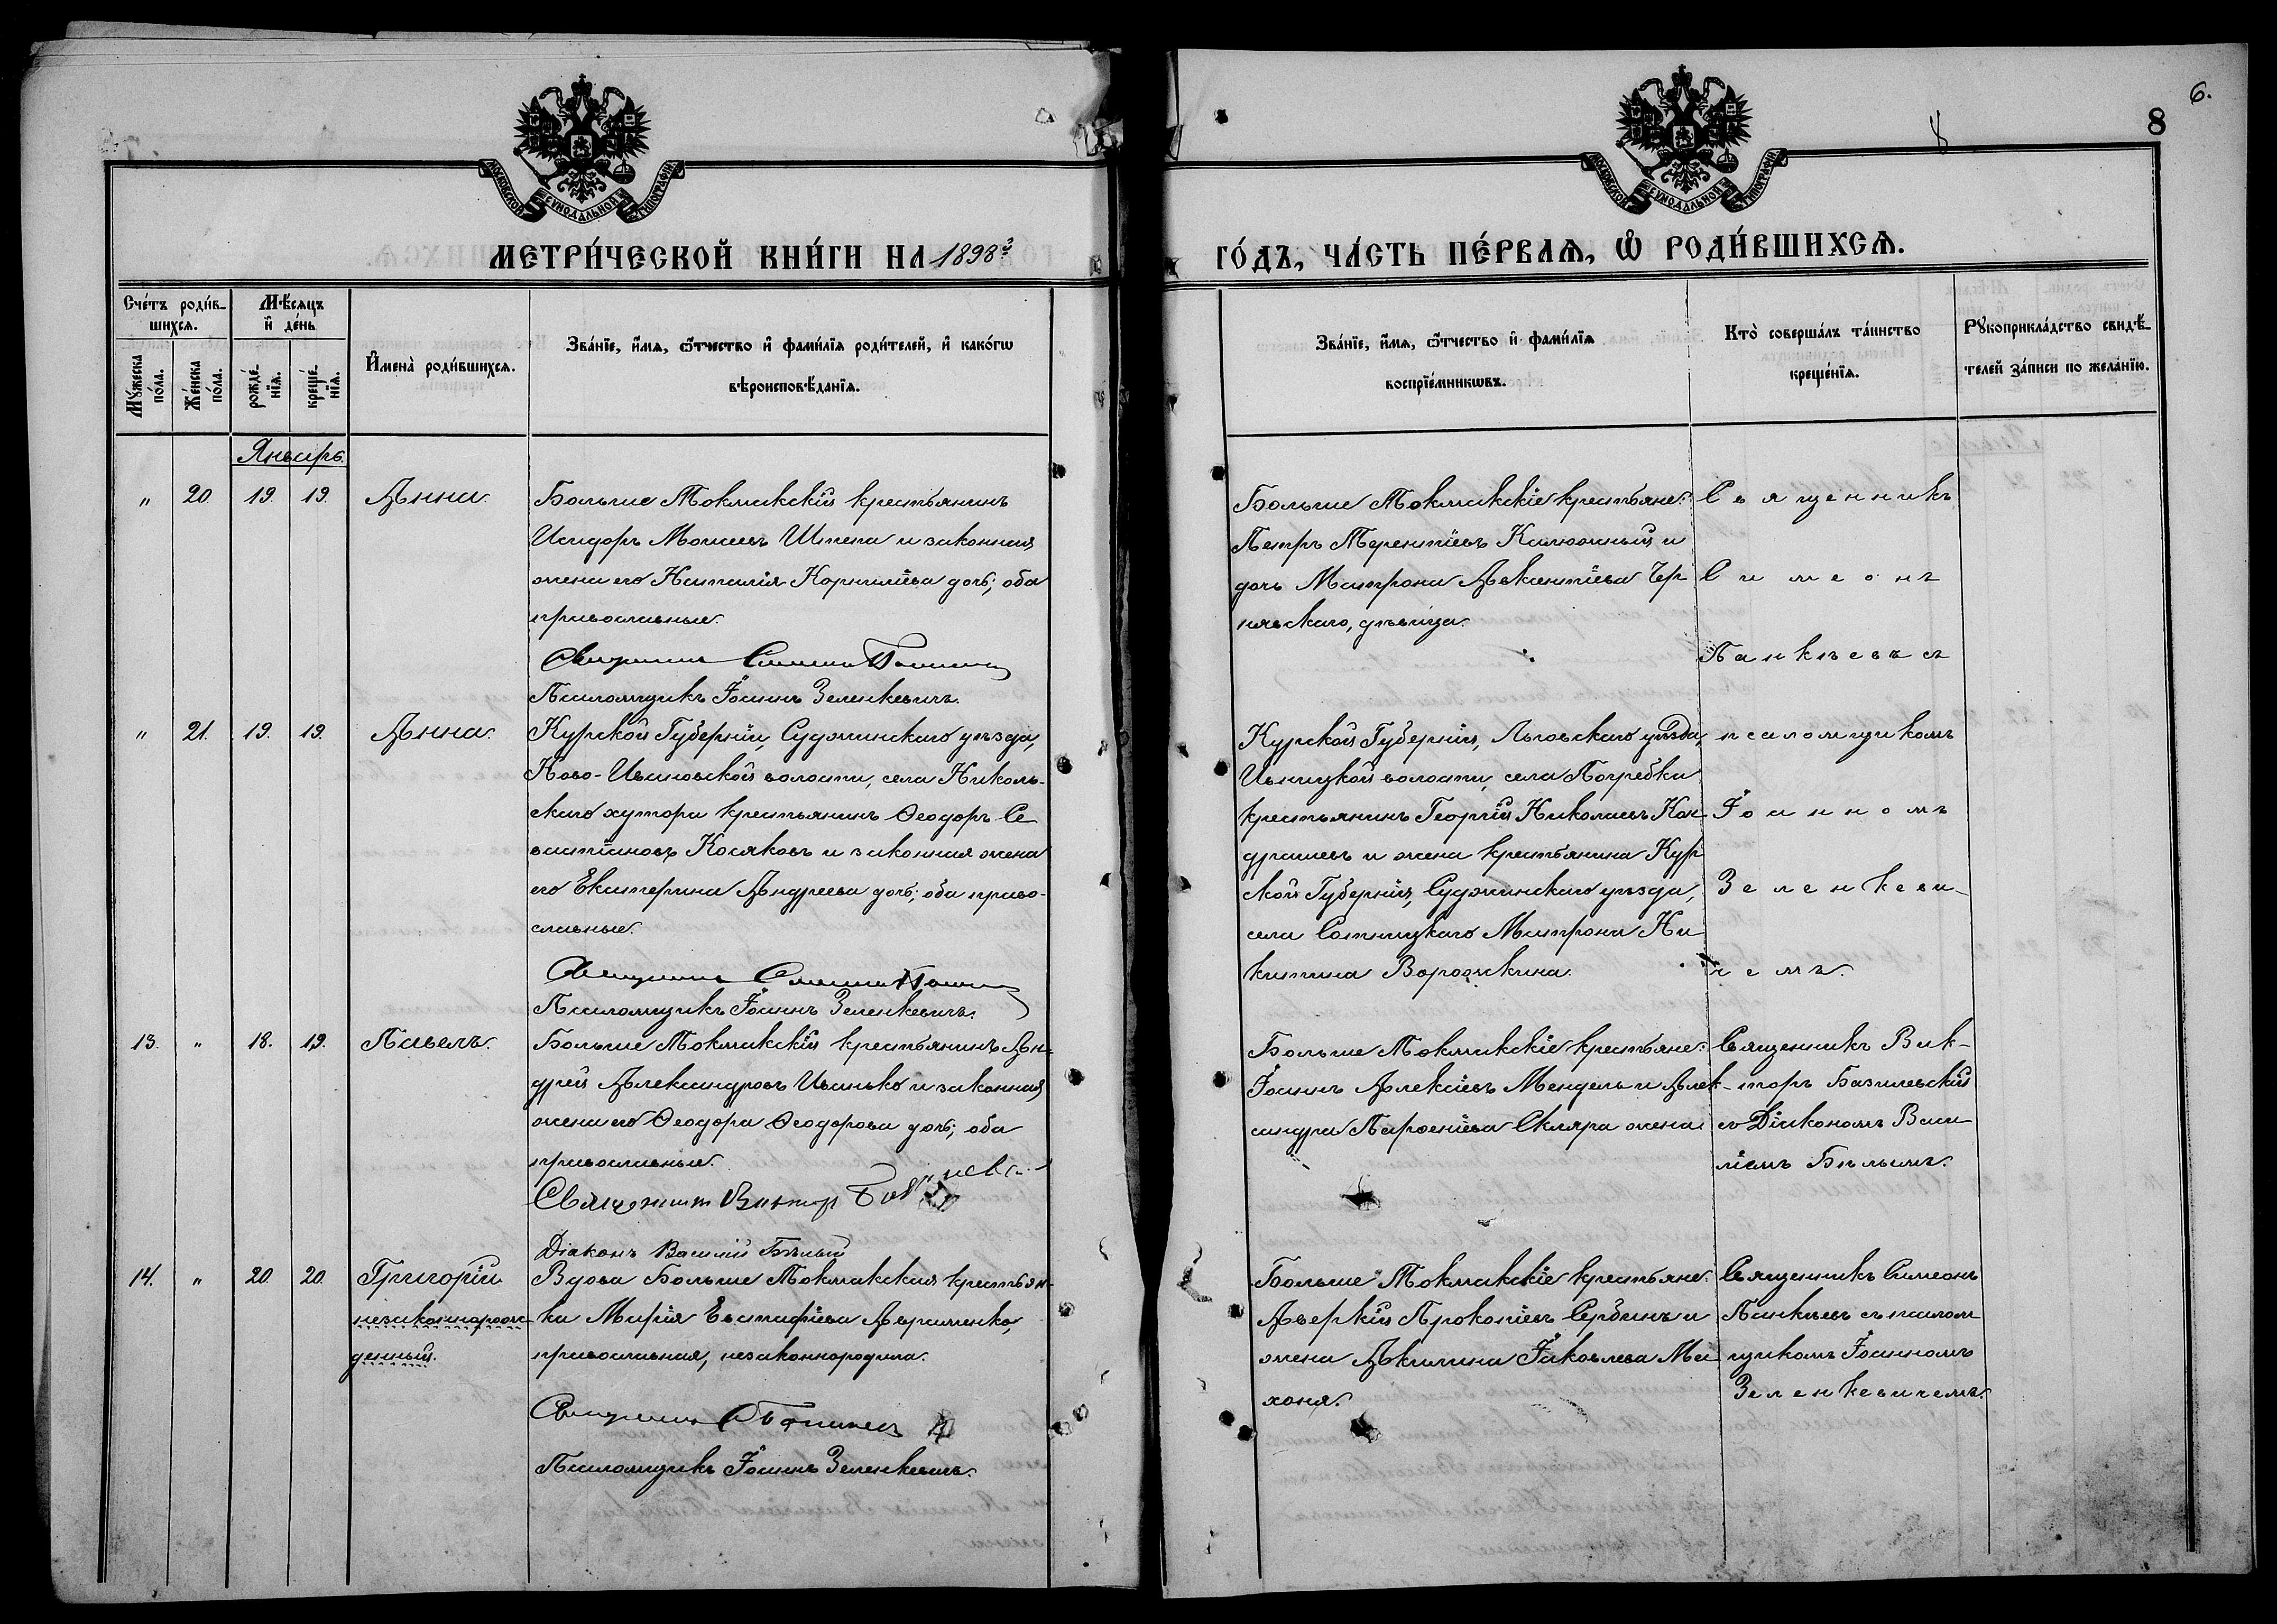 6.
8
8
МОСКОВСКОЙ СѴНОДАЛЬНОЙ ТИПОГРАФІИ
МОСКОВСКОЙ СѴНОДАЛЬНОЙ ТИПОГРАФІИ
МЕТРИ́ЧЕСКОЙ КНИ́ГИ НА 1898 г҃
ГО́ДЪ, ЧА́СТЬ ПЕ́РВАѦ, Ѡ҆ РОДИ́ВШИХСѦ.
Сче́тъ роди́в-
шихсѧ.
Мѣ́сѧцъ
и҆ де́нь
Мꙋ́жеска
по́ла.
Же́нска
по́ла.
рожде́-
нїѧ.
креще́-
нїѧ.
И҆мена̀ роди́вшихсѧ.
Зва́нїе, и҆́мѧ, ѻ҆́тчество и҆ фами́лїѧ роди́телей, и҆ како́гѡ
вѣроисповѣ́данїѧ.
Зва́нїе, и҆́мѧ, ѻ҆́тчество и҆ фами́лїѧ
воспрїе́мникѡвъ.
Кто̀ соверша́лъ та́инство
креще́нїѧ.
Рꙋкоприкла́дство свидѣ́-
телей за́писи по жела́нїю.
Январь.
" 20. 19. 19. Анна.
Больше Токмакскій крестьянинъ
Исидоръ Моисеевъ Шпета и законная
жена его Наталія Корниліева дочь; оба
православные.
Священникъ Симеонъ
Псаломщикъ Іоаннъ Зеленкевичъ.
Больше Токмакскіе крестьяне:
Петръ Терентіевъ Калюжный и
дочь Матрона Авксентіева Чер
нявскаго, дѣвица.
Священникъ
Симеонъ
Панкѣевъ съ
псаломщикомъ
Іоанномъ
Зеленкеви-
чемъ.
" 21. 19. 19. Анна.
Курской Губерніи, Суджанскаго уѣзда,
Ново-Ивановской волости, села Николь-
скаго хутора крестьянинъ Ѳеодоръ Се
вастіановъ Косяковъ и законная жена
его Екатерина Андреева дочь; оба право-
славные.
Священникъ Симеонъ
Псаломщикъ Іоаннъ Зеленкевичъ.
Курской Губерніи, Льговскаго уѣзда,
Иваницкой волости, села Погребки
крестьянинъ Георгій Николаевъ Кон
драшевъ и жена крестьянина Кур
ской Губерніи, Суджанскаго уѣзда,
села Сотницкаго Матрона Ни
китина Ворожкина.
13. " 18. 19. Павелъ.
Больше Токмакскій крестьянинъ Ан-
дрей Александровъ Иванько и законная
жена его Ѳеодора Ѳеодорова дочь; оба
православные.
Священникъ Викторъ
Діаконъ Василій Бѣлый
Больше Токмакскіе крестьяне:
Іоаннъ Алексіевъ Мендель и Алек-
сандра Парѳеніева Скляра жена
Священникъ Вик-
торъ Базилевскій
съ Діакономъ Васи
ліемъ Бѣлымъ.
14. " 20. 20. Григорій
незаконнорож-
денный.
Вдова Больше Токмакская крестьян-
ка Марія Евстафіева Авраменко,
православная, незаконнородила.
Священникъ
Псаломщикъ Іоаннъ Зеленкевичъ.
Больше Токмакскіе крестьяне:
Аверкій Прокопіевъ Сербинъ и
жена Акилина Іаковлева Ма
хоня.
Священникъ Симеонъ
Панкѣевъ съ псалом
щикомъ Іоанномъ
Зеленкевичемъ.